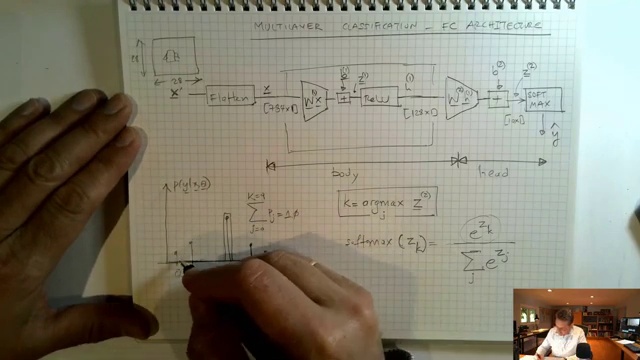 MULTICLASS CLASSIFICATION - FC ARCHITECTURE
28
28
x'
Flatten
x
[784x1]
W⁽¹⁾x
b⁽¹⁾
+
z⁽¹⁾
ReLU
h⁽¹⁾
[128x1]
W⁽²⁾h⁽¹⁾
b⁽²⁾
+
z⁽²⁾
[10x1]
SOFT
MAX
ŷ
body
head
P(y|x,θ)
K=9
∑ Pj = 1.0
j=0
K = argmax z⁽²⁾
j
softmax (zk) = e^zk / ∑ e^zj
j
0